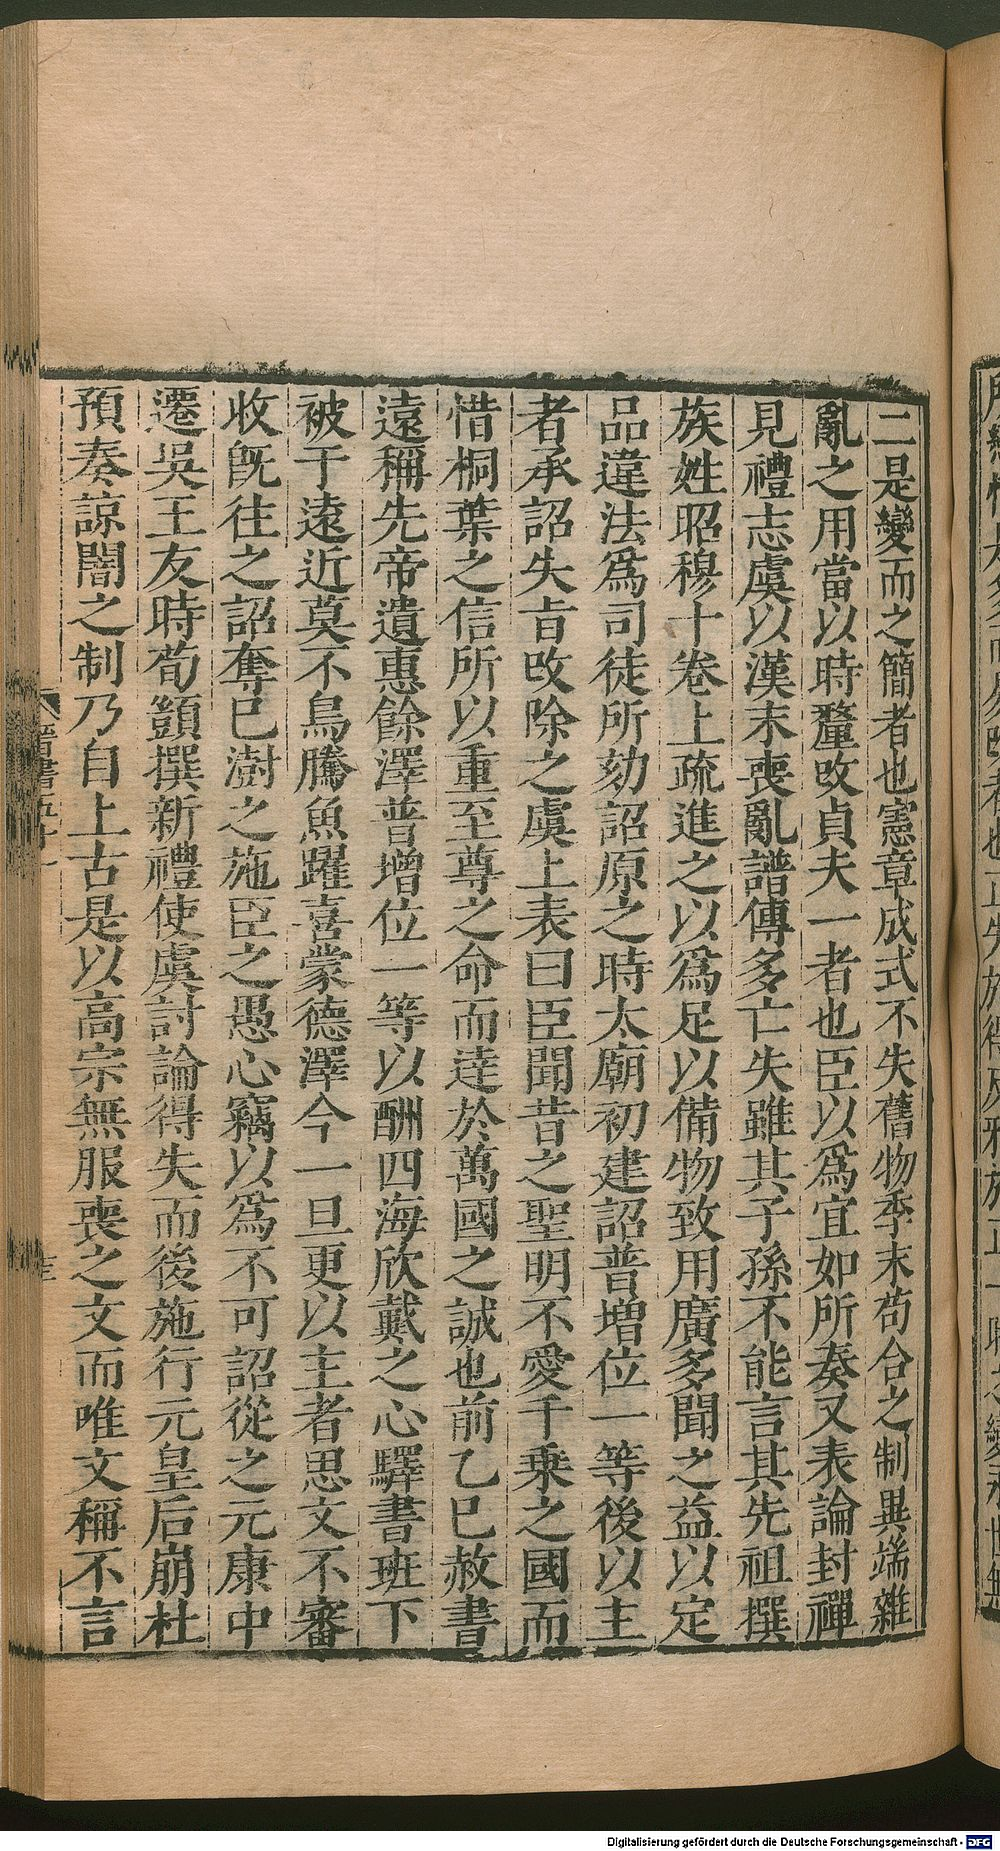 二是變而之簡者也憲章成式不失舊物季末苟合之制異端雜
亂之用當以時釐改貞夫一者也臣以爲宜如所奏又表論封禪
見禮志虞以漢末喪亂譜傳多亡失雖其子孫不能言其先祖撰
族姓昭穆十卷上疏進之以爲足以備物致用廣多聞之益以定
品違法爲司徒所劾詔原之時太廟初建詔普增位一等後以主
者承詔失旨改除之虞上表曰臣聞昔之聖明不愛千乗之國而
惜桐葉之信所以重至尊之命而達於萬國之誠也前乙巳赦書
遠稱先帝遺惠餘澤普增位一等以酬四海欣戴之心驛書班下
被于遠近莫不鳥騰魚躍喜蒙德澤今一旦更以主者思文不審
收旣往之詔奪已澍之施臣之愚心竊以爲不可詔從之元康中
遷吳王友時荀顗撰新禮使虞討論得失而後施行元皇后崩杜
預奏諒闇之制乃自上古是以高宗無服喪之文而唯文稱不言
晉書五十一
Digitalisierung gefördert durch die Deutsche Forschungsgemeinschaft - DFG